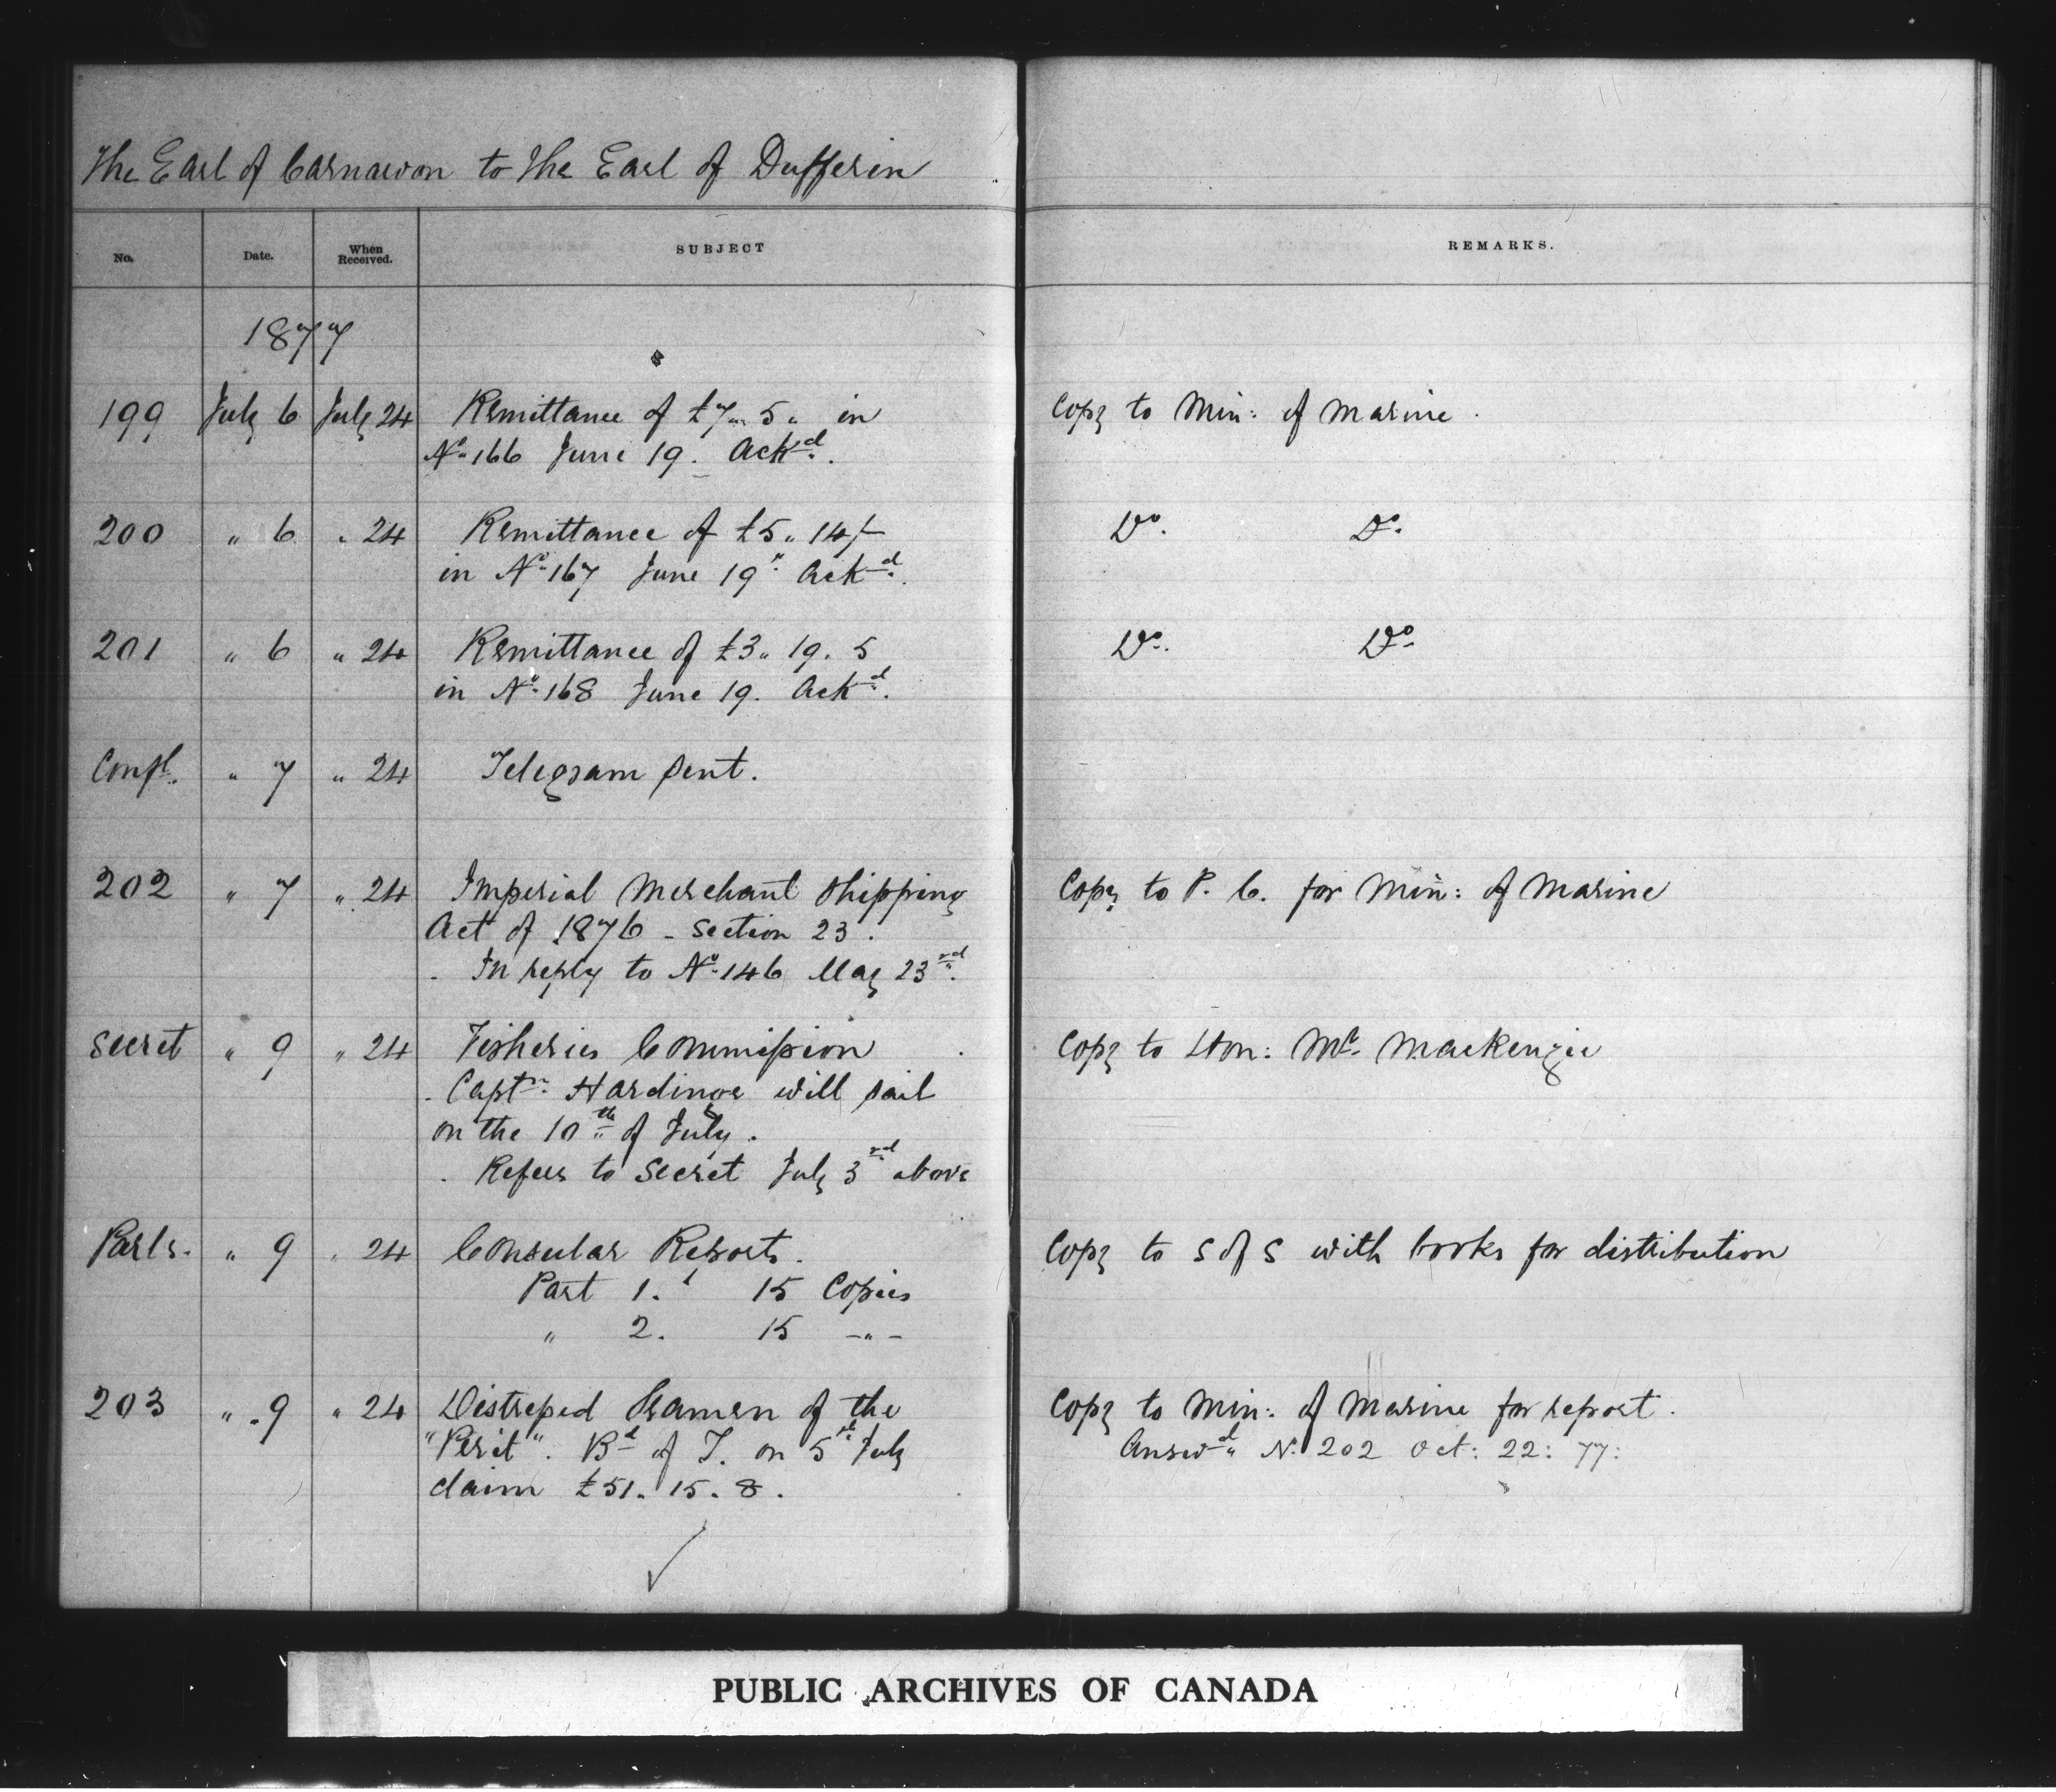 The Earl of Carnarvon to The Earl of Dufferin
No. Date. When Received. SUBJECT REMARKS.
1877
199 July 6 July 24 Remittance of £7 " 5 " in Copy to Min: of Marine.
No. 166 June 19. Ackd.
200 " 6 " 24 Remittance of £5 " 14/- Do. Do.
in No. 167 June 19" Ackd.
201 " 6 " 24 Remittance of £3 " 19. 5 Do. Do.
in No. 168 June 19. Ackd.
Confl. " 7 " 24 Telegram sent.
202 " 7 " 24 Imperial Merchant Shipping Copy to P. C. for Min: of Marine
Act of 1876 - Section 23.
- In reply to No. 146 May 23rd.
Secret " 9 " 24 Fisheries Commission Copy to Hon: Mr. Mackenzie
- Captn. Hardinge will sail
on the 10th of July.
- Refers to Secret July 3rd above
Parly. " 9 " 24 Consular Reports. Copy to S of S with books for distribution
Part 1. 15 Copies
" 2. 15 - " -
203 " 9 " 24 Distressed Seamen of the Copy to Min: of Marine for report.
"Perit". Bd of T. on 5th July Answd. N. 202 Oct: 22: 77:
claim £51. 15. 8.
PUBLIC ARCHIVES OF CANADA